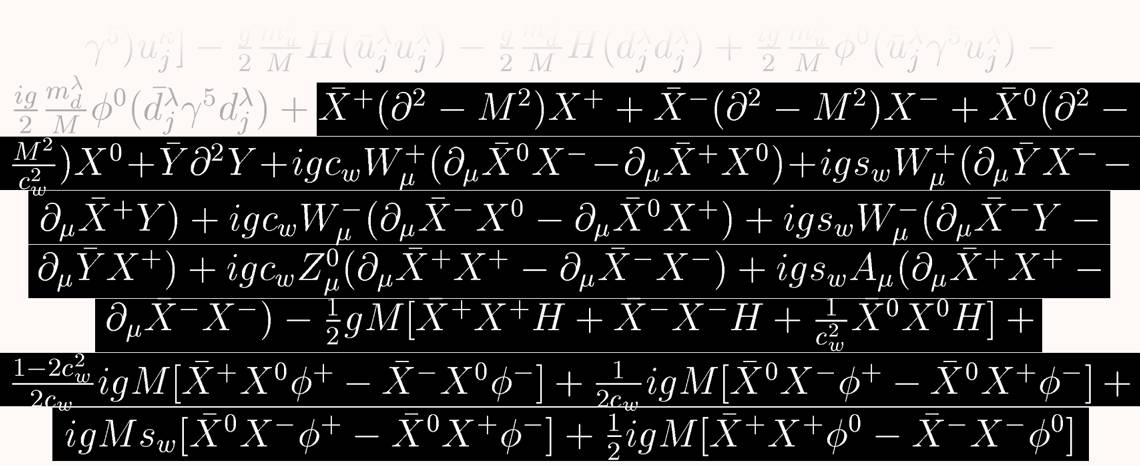 γ⁵)u_j^κ] − \frac{g}{2}\frac{m_u^λ}{M}H(ū_j^λ u_j^λ) − \frac{g}{2}\frac{m_d^λ}{M}H(d̄_j^λ d_j^λ) + \frac{ig}{2}\frac{m_u^λ}{M}ϕ⁰(ū_j^λ γ⁵ u_j^λ) −
\frac{ig}{2}\frac{m_d^λ}{M}ϕ⁰(d̄_j^λ γ⁵ d_j^λ) + X̄⁺(∂² − M²)X⁺ + X̄⁻(∂² − M²)X⁻ + X̄⁰(∂² −
\frac{M²}{c_w²})X⁰ + Ȳ∂²Y + igc_wW_μ⁺(∂_μX̄⁰X⁻ − ∂_μX̄⁺X⁰) + igs_wW_μ⁺(∂_μȲX⁻ −
∂_μX̄⁺Y) + igc_wW_μ⁻(∂_μX̄⁻X⁰ − ∂_μX̄⁰X⁺) + igs_wW_μ⁻(∂_μX̄⁻Y −
∂_μȲX⁺) + igc_wZ_μ⁰(∂_μX̄⁺X⁺ − ∂_μX̄⁻X⁻) + igs_wA_μ(∂_μX̄⁺X⁺ −
∂_μX̄⁻X⁻) − \frac{1}{2}gM[X̄⁺X⁺H + X̄⁻X⁻H + \frac{1}{c_w²}X̄⁰X⁰H] +
\frac{1−2c_w²}{2c_w}igM[X̄⁺X⁰ϕ⁺ − X̄⁻X⁰ϕ⁻] + \frac{1}{2c_w}igM[X̄⁰X⁻ϕ⁺ − X̄⁰X⁺ϕ⁻] +
igMs_w[X̄⁰X⁻ϕ⁺ − X̄⁰X⁺ϕ⁻] + \frac{1}{2}igM[X̄⁺X⁺ϕ⁰ − X̄⁻X⁻ϕ⁰]